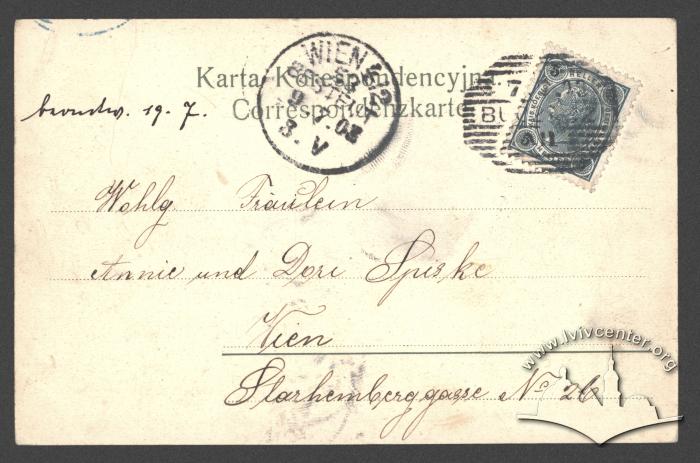 Karta Korespondencyjna
Correspondenzkarte
WIEN
BESTELLT
9.7.02
3.V
7
BU
5 HELLER 5
beantw. 19. 7.
Wohlg. Fräulein
Annie und Dori Spiske
Wien
Starhemberggasse No 26
www.lvivcenter.org